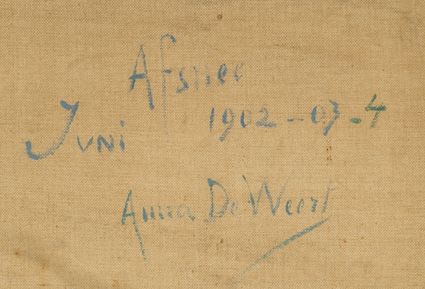 Afsnee
Juni 1902-03-4
Anna De Weert